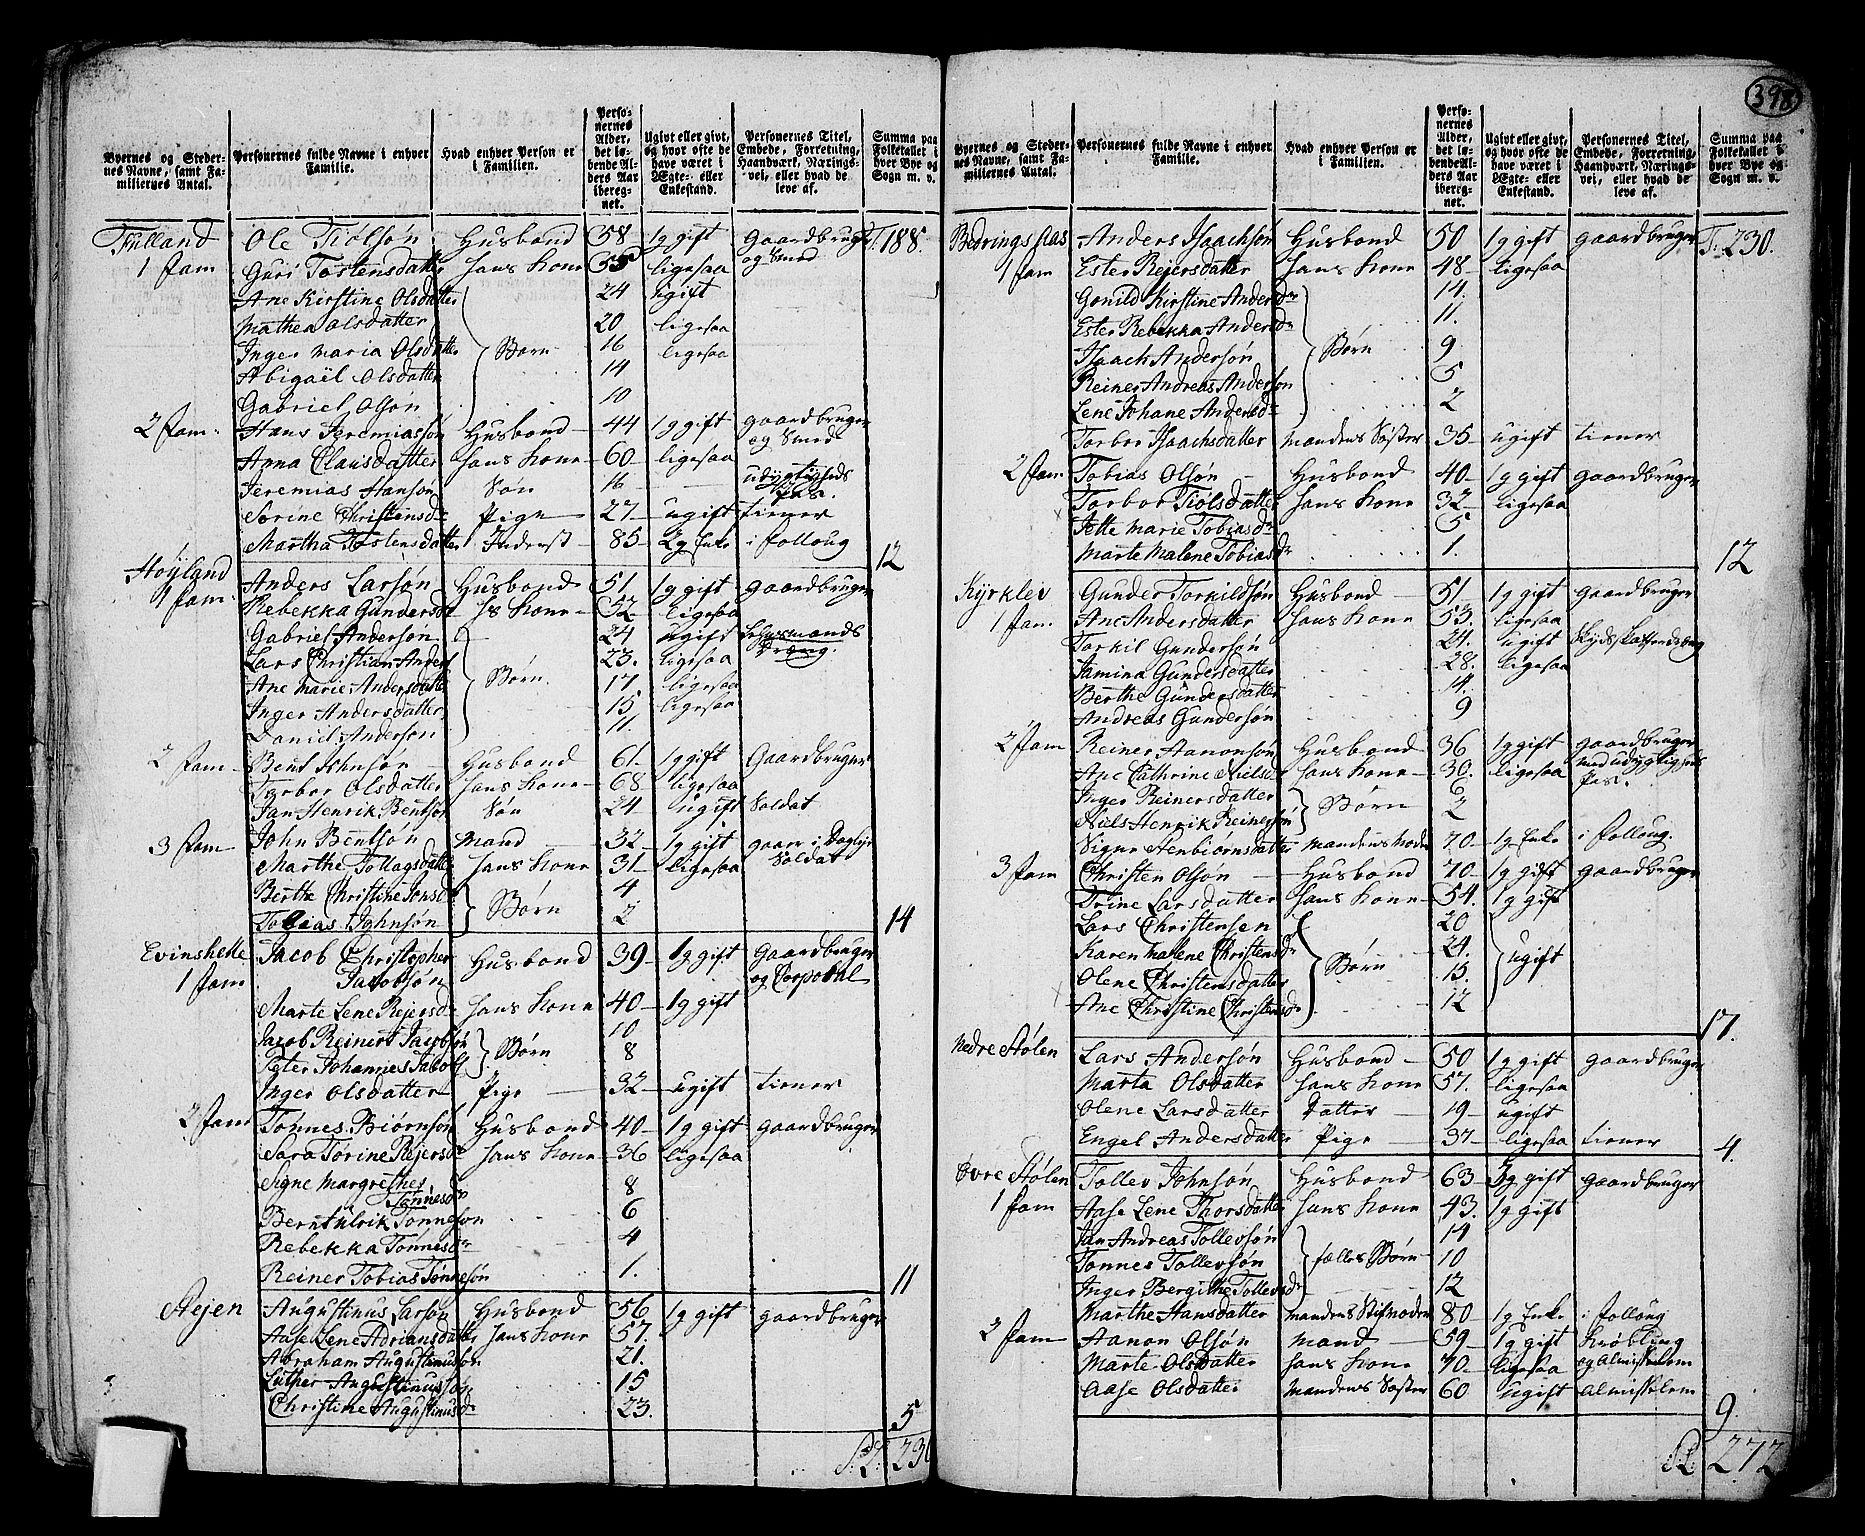 398
Byernes og Stedernes Navne, samt Familiernes Antal. | Personernes fulde Navne i enhver Familie. | Hvad enhver Person er i Familien. | Personernes Alder, det løbende Alders Aar iberegnet. | Ugivt eller givt, og hvor ofte de have været i Ægte- eller Enkestand. | Personernes Titel, Embede, Forretning, Haandværk, Næringsvei, eller hvad de leve af. | Summa paa Folketallet i hver Bye og Sogn m. v.
Fulland | Ole Tiølsøn | Husbond | 58 | 1g gift | Gaardbruger | T. 188.
1 fam | Guri Tostensdatter | hans Kone | 55 | ligesaa | og Smed
Ane Kirstine Olsdatter | 24 | ugift
Mathea Olsdatter | 20 | ligesaa
Inger Maria Olsdatter | Børn | 16 | ligesaa
Abigaël Olsdatter | 14
Gabriel Olsøn | 10
2 fam. | Hans Jeremiassøn | Husbond | 44 | 1g gift | gaardbruger
og Smed
Anna Clausdatter | hans Kone | 60 | ligesaa
Jeremias Hansøn | Søn | 16 | udygtigheds Pas.
Sorine Christensdr | Pige | 27 | ugift | tiener
Martha Tostensdatter | Inderst | 85 | 2g Enke | i folloug | 12
Høyland | Anders Larsøn | Husbond | 51 | 1g gift | gaardbruger
1 fam. | Rebekka Gundersdr | hs Kone | 52 | ligesaa
Gabriel Andersøn | 24 | ugift
Lars Christian Anders | 23. | ligesaa
Ane Marie Andersdatter | Børn | 17 | ligesaa
Inger Andersdatter | 15 | ligesaa
Daniel Anderson | 11.
2 fam | Bent Johnsøn | Husbond | 61. | 1g gift | Gaardbruger
Torbor Olsdatter | hans Kone | 68 | ligesaa
Jan Henrik Bentsøn | Søn | 24 | ugift | Soldat
3 fam | John Bentsøn | Mand | 32 | 1g gift | gaaer i Dagleje
Soldat
Marthe Tollagsdatter | hans Kone | 31 | ligesaa
Berthe Christine Jonsdr | Børn | 4
Tobias Johnsøn | 2 | 14
Evinshelle | Jacob Christopher | Husbond | 39 | 1g gift | Gaardbruger
1 fam | Jacobsøn | og Corporal
Marte Lene Rejersdr | hans Kone | 40 | 1g gift
Jacob Reinert Jacobsøn | Børn | 10
Peter Johannes Jacobs | 8
Inger Olsdatter | Pige | 32 | ugift | tiener
2 fam | Tønnes Biørnsøn | Husbond | 40 | 1g gift | gaardbruger
Sara Torine Rejersdr | hans Kone | 36 | ligesaa
Signe Margrethe
Tønnesdr | 8
Bernt Ulrik Tønnesøn | 6
Rebekka Tønnesdr | 4
Reiner Tobias Tønnesøn | 1. | 11
Stejen | Augustinus Larsøn | Husbond | 56 | 1g gift | gaardbruger
Aase Lene Adriansdatter | hans Kone | 57.
Abraham Augustinussøn | 21.
Luther Augustinussøn | 15
Christine Augustinusdr | 23. | 5
S. T. 230
Byernes og Stedernes Navne, samt Familiernes Antal. | Personernes fulde Navne i enhver Familie. | Hvad enhver Person er i Familien. | Personernes Alder, det løbende Alders Aar iberegnet. | Ugivt eller givt, og hvor ofte de have været i Ægte- eller Enkestand. | Personernes Titel, Embede, Forretning, Haandværk, Næringsvei, eller hvad de leve af. | Summa paa Folketallet i hver Bye og Sogn m. v.
Anders Isaachsøn | Husbond | 50 | 1g gift | gaardbruger | T. 230.
1 fam | Ester Rejersdatter | hans Kone | 48 | ligesaa
Gonild Kirstine Andersdr | 14.
Ester Rebekka Andersdr | 11.
Isaach Andersøn | Børn | 9
Reiner Andreas Anderson | 5
Lene Johane Andersdr | 2
Torbor Isaachsdatter | Mandens Søster | 35 | ugift | tiener
2 fam | Tobias Olsøn | Husbond | 40 | 1g gift | gaardbruger
Torbor Tiølsdatter | hans Kone | 32 | ligesaa
Jette Marie Tobiasdr | 5
Marte Malene Tobiasdr | 1. | 12
Kyrklev | Gunder Torkildsøn | Husbond | 51. | 1g gift | gaardbruger
1 fam. | Ane Andersdatter | hans Kone | 53. | ligesaa
Torkil Gundersøn | 24. | ugift
Jamina Gundersdatter | 28. | ligesaa
Berthe Gundersdatter | 14.
Andreas Gundersøn | 9
2 fam | Reiner Aanonsøn | Husbond | 36 | 1g gift | gaardbruger
Ane Cathrine Nielsdr | hans Kone | 30. | ligesaa | med udygtigheds
Pas.
Inger Reinersdatter | Børn | 6
Niels Henrik Reinersøn | 2
Signe Stenbiørnsdatter | Mandens Moder | 70 | 1g Enke | i folloug.
3 fam | Christen Olson | Husbond | 70 | 1g gift | gaardbruger
Trine Larsdatter | hans Kone | 54. | 1g gift
Lars Christensen | 20
Karen Malene Christensdr | Børn | 24. | ugift
Olene Christensdatter | 15
Ane Christine Christensdr | 12 | 17.
Nedre Stølen | Lars Andersøn | Husbond | 50 | 1g gift | gaardbruger
Marta Olsdatter | hans Kone | 57. | ligesaa
Olene Larsdatter | Datter | 19 | ugift
Engel Andersdatter | Pige | 37 | ligesaa | tiener | 4.
Øvre Stølen | Tollev Johnsøn | Husbond | 63 | 3g gift | gaardbruger
1 fam | Aase Lene Thorsdatter | hans Kone | 43. | 1g gift
Jan Andreas Tollevsøn | 14
Tønnes Tollevsøn | fælles Børn | 10
Inger Bergithe Tollevsdr | 12
Marthe Hansdatter | Mandens Stifmoder | 80 | 1g Enke | i folloug
2 fam | Aanon Olsøn | Mand | 59 | 1g gift | Krøbling
Marte Olsdatter | hans Kone | 70 | ligesaa | og Almisselem
Aase Olsdatter | Mandens Søster | 60 | ugift | Almisselem | 9.
S. 272